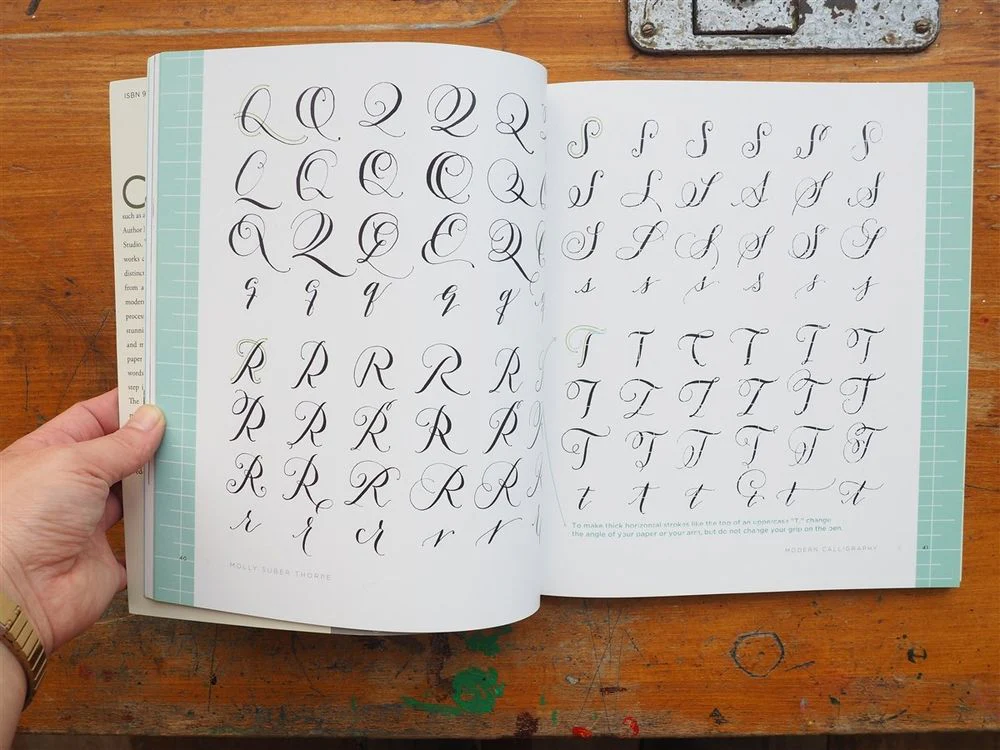 ISBN 9
C
such as a
Author
Studio.
works c
distinct
from a
modern
proces
stunni
and m
paper
words
step
The
Q Q Q Q Q
Q Q Q Q Q
Q Q Q Q Q
q q q q q
R R R R R
R R R R R
R R R R R
r r r r r
40
MOLLY SUBER THORPE
S S S S S S
S S S S S S
S S S S S S
s s s s s s
T T T T T T
T T T T T T
T T T T T T
t t t t t t
To make thick horizontal strokes like the top of an uppercase "T," change
the angle of your paper or your arm, but do not change your grip on the pen.
MODERN CALLIGRAPHY
41